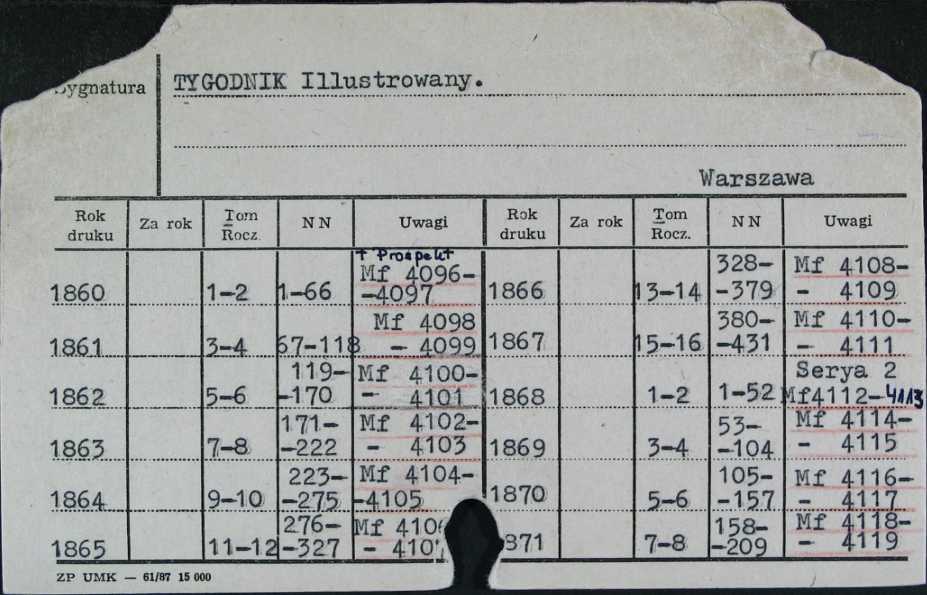 Sygnatura
TYGODNIK Illustrowany.
Warszawa
Rok druku Za rok Tom Rocz. NN Uwagi Rok druku Za rok Tom Rocz. NN Uwagi
+ Prospekt
1860 1-2 1-66 Mf 4096- -4097 1866 13-14 328- -379 Mf 4108- - 4109
1861 3-4 67-118 Mf 4098 - 4099 1867 15-16 380- -431 Mf 4110- - 4111
1862 5-6 119- -170 Mf 4100- - 4101 1868 1-2 1-52 Serya 2 Mf4112-4113
1863 7-8 171- -222 Mf 4102- - 4103 1869 3-4 53- -104 Mf 4114- - 4115
1864 9-10 223- -275 Mf 4104- -4105 1870 5-6 105- -157 Mf 4116- - 4117
1865 11-12 276- -327 Mf 4106 - 4107 871 7-8 158- -209 Mf 4118- - 4119
ZP UMK — 61/87 15 000